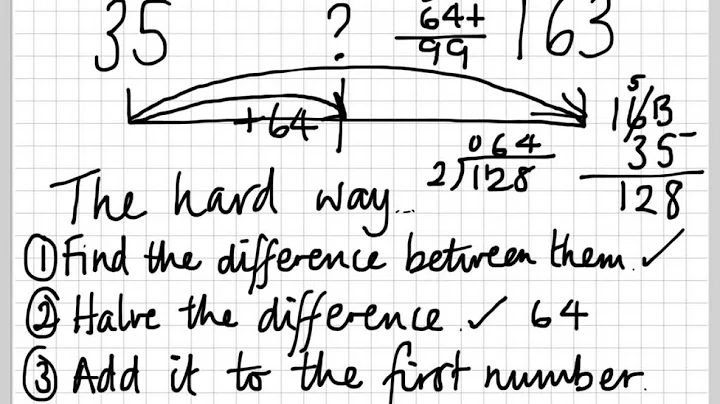 35 ? 64+ 163
99
+64
064
2)128
163
5
35-
128
The hard way...
① Find the difference between them. ✓
② Halve the difference. ✓ 64
③ Add it to the first number.